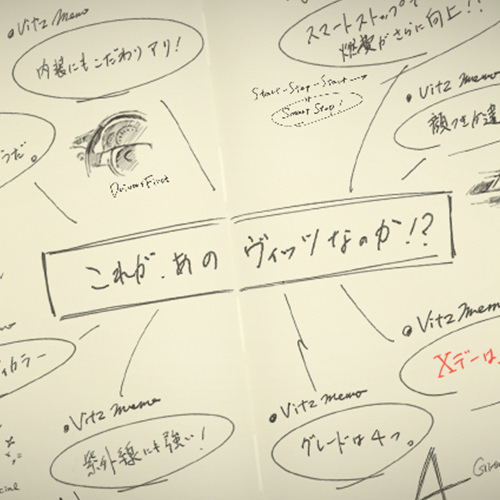 ●Vitz Memo
内装にもこだわりアリ!
スマートストップで
燃費がさらに向上!!
Start-Stop-Start→
Smart Stop!
●Vitz memo
顔つきが違
だ。
Driver's First
これが、あの ヴィッツなのか!?
カラー
●Vitz memo
Xデーは、
●Vitz memo
紫外線にも強い!
●Vitz memo
グレードは4つ。